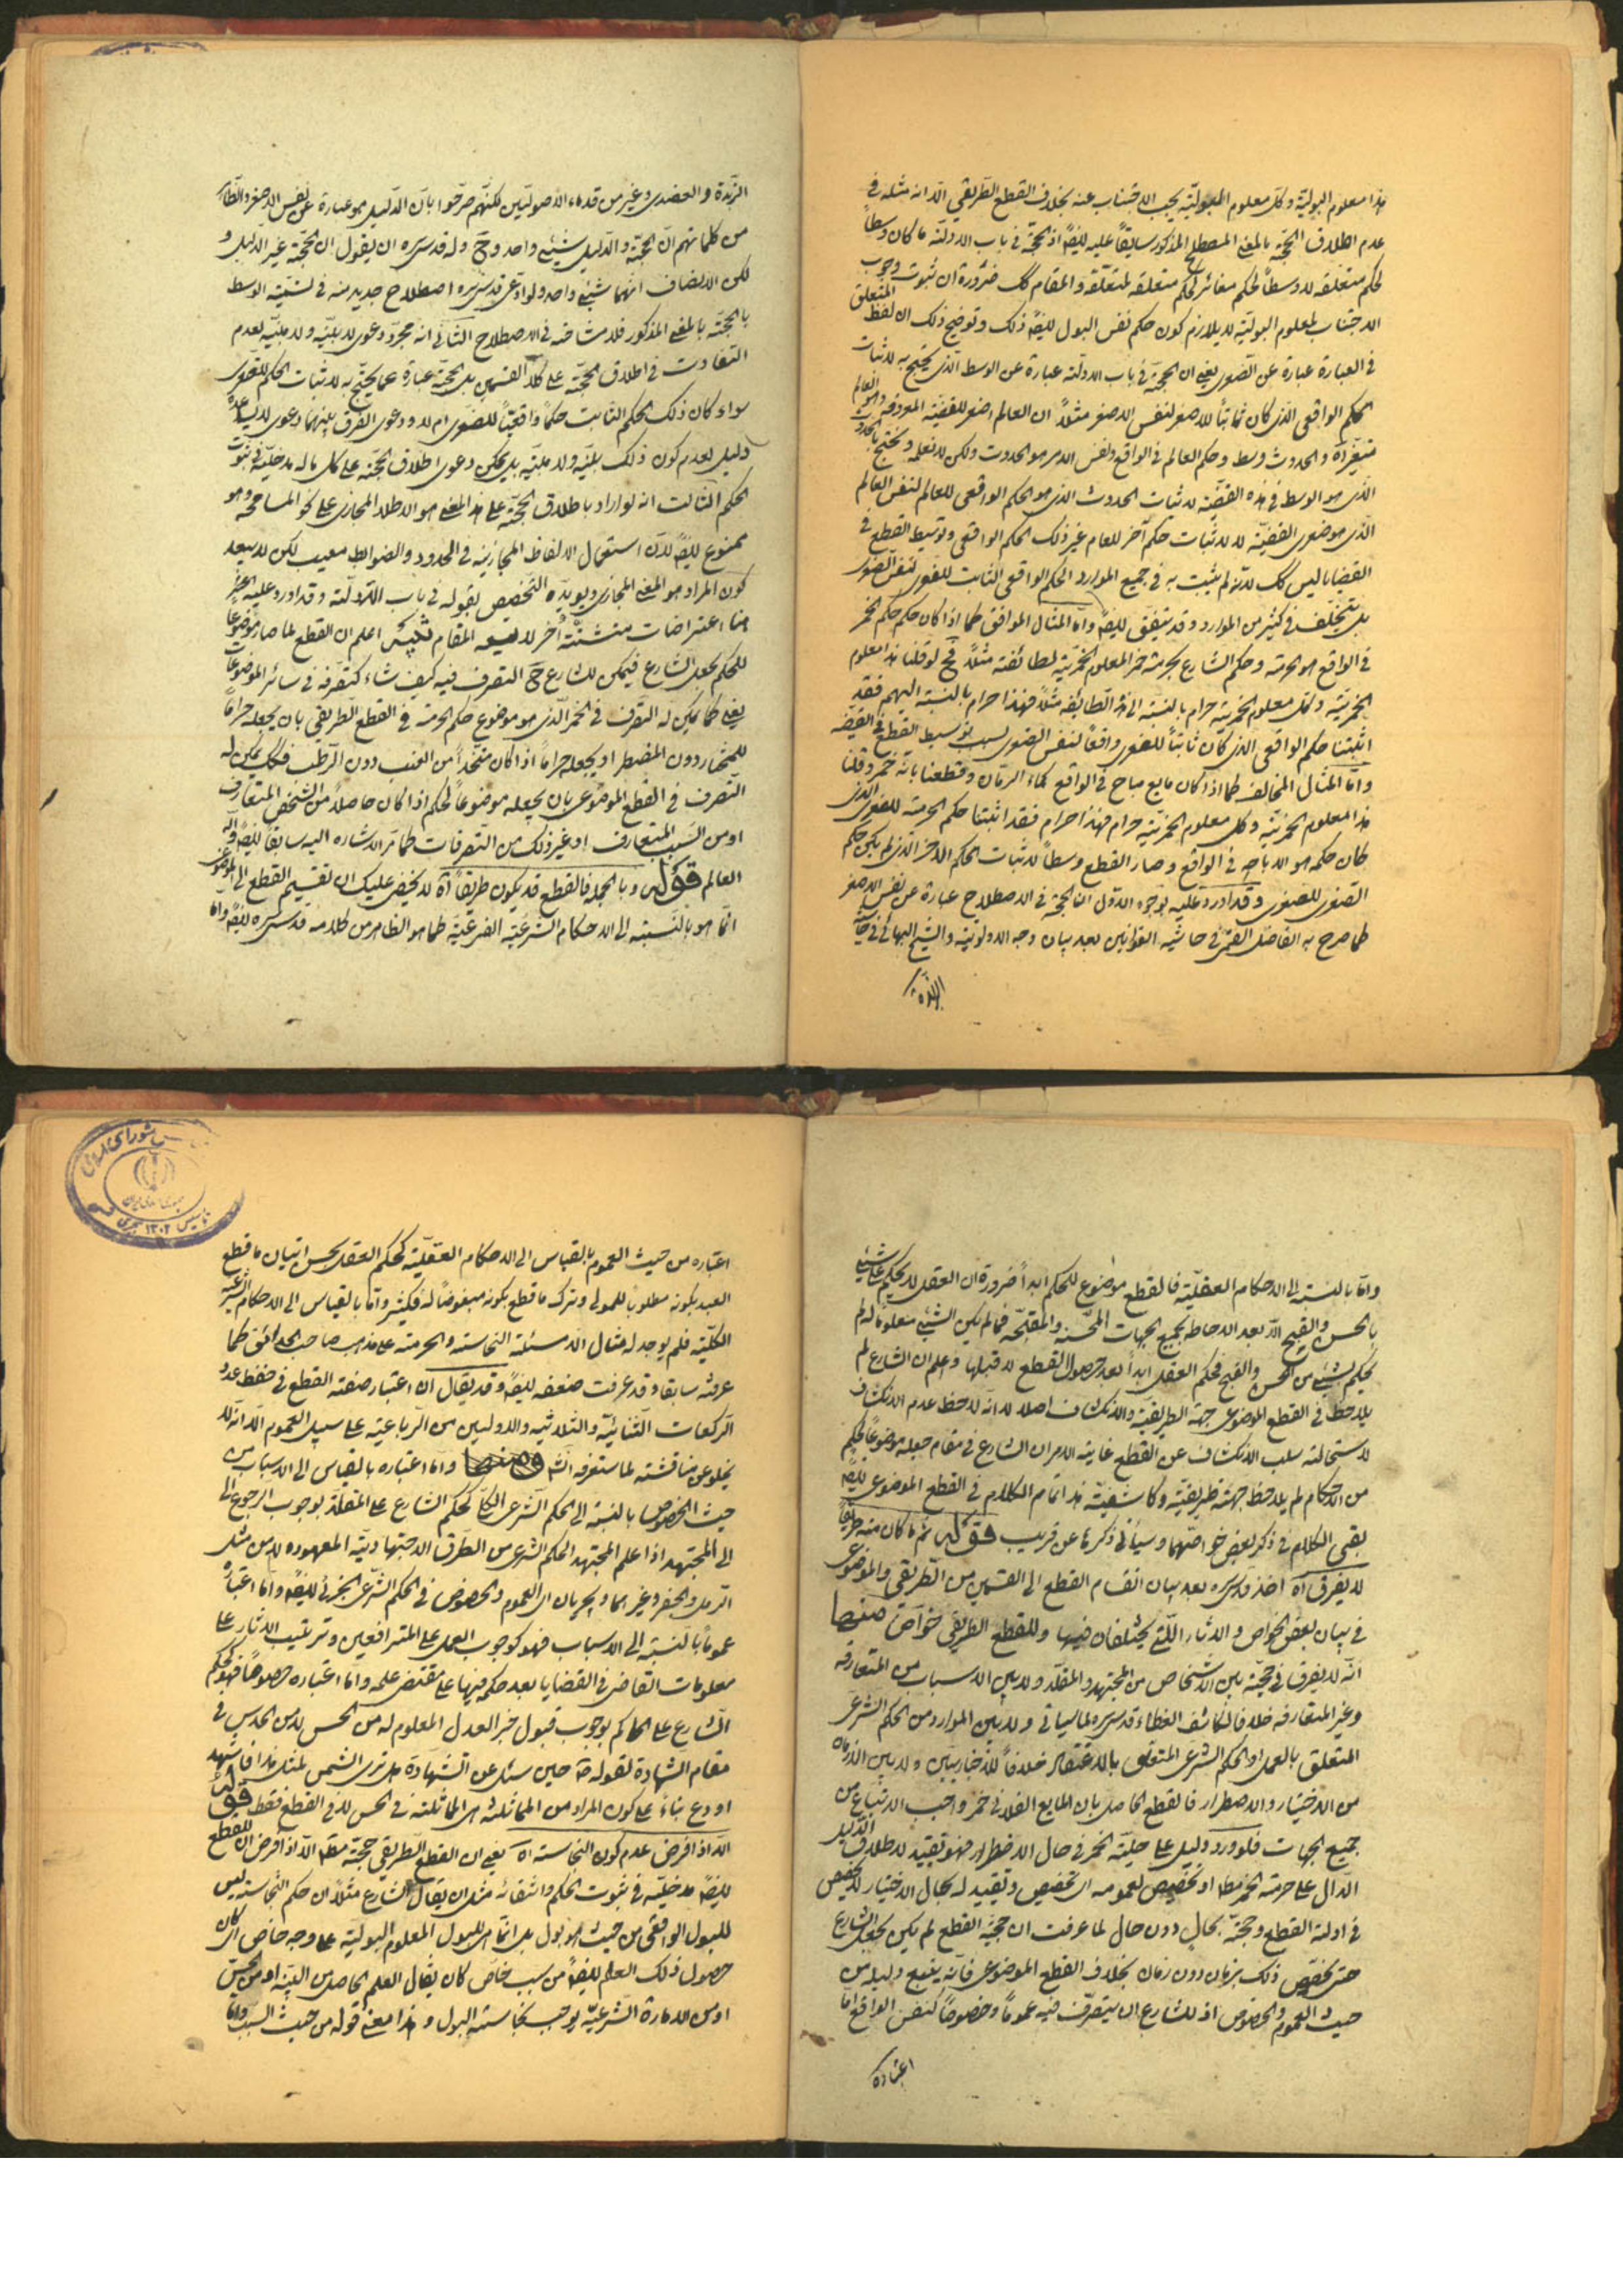 هذا معلوم البولیّة و کلّ معلوم البولیّة یجب الاجتناب عنه بخلاف القطع الطریقی الّا انه مثله فی
عدم اطلاق الحجّة بالمعنی المصطلح المذکور سابقاً علیه ایضاً اذ الحجّة فی باب الادلّة ما کان وسطاً
لحکم متعلقه لا وسطاً لحکم مغائر لحکم متعلقه لمتعلّقه و المقام کک ضرورة ان ثبوت وجوب
الاجتناب لمعلوم البولیّة لا یلازم کون حکم نفس البول ایضاً ذلک و توضیح ذلک ان لفظ المتعلق
فی العبارة عبارة عن الصّغری یعنی ان الحجیّة فی باب الادلّة عبارة عن الوسط الّذی یحتجّ به لاثبات
الحکم الواقعی الذی کان ثابتاً للاصغر لنفس الاصغر مثلاً ان العالم اصغر للقضیّة المعروفة و هو العالم
متغیّر آه و الحدوث وسط و حکم العالم فی الواقع و نفس الامر هو الحدوث ولکن لا نعلمه و نحتج بالحدوث
الذی هو الوسط فی هذه القضیّة لاثبات الحدوث الذی هو الحکم الواقعی للعالم لنفس العالم
الّذی هو صغری القضیّة لا لاثبات حکم آخر للعام غیر ذلک الحکم الواقعی و توسیط القطع فی
القضایا لیس کک لانّه لم یثبت به فی جمیع الموارد الحکم الواقعی الثابت للصغری لنفس الصغری
بل یتخلّف فی کثیر من الموارد و قد یتفق ایضاً و امّا المثال الموافق کما اذا کان حکم حکم الخمر
فی الواقع هو الحرمة و حکم الشارع بحرمة خمر المعلوم الخمریّة لطائفة مثلاً فح لو قلنا هذا معلوم
الخمریّة و کل معلوم الخمریّة حرام بالنسبة الی هذا الطائفة مثلا فهذا حرام بالنسبة الیهم فقد
اثبتنا حکم الواقعی الذی کان ثابتاً للصغری واقعاً لنفس الصغری بسبب توسیط القطع فی القضیّة
و امّا المثال المخالف کما اذا کان مایع مباح فی الواقع کماء الرمّان و قطعنا بانّه خمر و قلنا
هذا معلوم الخمریّة و کل معلوم الخمریّة حرام فهذا حرام فقد اثبتنا حکم الحرمة للصغری الذی
کان حکمه هو الاباحه فی الواقع و صار القطع وسطاً لاثبات الحکم الآخر الذی لم یکن حکم
الصغری للصغری و قد اورد علیه بوجوه الاوّل ان الحجّة فی الاصطلاح عبارة عن نفس الاصغر
کما صرح به الفاضل القمّی فی حاشیة القوانین بعد بیان وجه الاولویّة و الشیخ البهائی فی حاشیة
الزّبدة
الزّبدة و العضدی و غیر من قدماء الاصولیّین لکنّهم صرّحوا بانّ الدّلیل هو عبارة عن نفس الاصغر و الظاهر
من کلماتهم انّ الحجّة و الدّلیل شیئی واحد و ح و له قدس سره ان یقول ان الحجّة غیر الدّلیل و
لکن الانصاف انّهما شیئی واحد و لو ادّعی قدس سره اصطلاح جدید منه فی تسمیة الوسط
بالحجّة بالمعنی المذکور فلا مشاحّة فی الاصطلاح الثانی انه مجرّد دعوی لا بیّنة و لا مبیّنة لعدم
التفاوت فی اطلاق الحجّة علی کلا القسمین بل الحجّة عبارة عما یحتجّ به لاثبات الحکم للصغری
سواء کان ذلک الحکم الثابت حکماً واقعیّاً للصغری ام لا و دعوی الفرق بینهما دعوی لا یساعده
دلیل لعدم کون ذلک بیّنة و لا مبیّنة بل یمکن دعوی اطلاق الحجّة علی کل ما له مدخلیّة فی ثبوت
الحکم الثالث انه لو اراد باطلاق الحجّة علی هذا المعنی هو الاطلاق المجازی علی نحو المسامحة و هو
ممنوع ایضاً لانّ استعمال الالفاظ المجازیّة فی الحدود و الضوابط معیب لکن لا یبعد
کون المراد هو المعنی المجازی و یؤیّده التخصیص بقوله فی باب الادلّة و قد اورد علیه
هنا اعتراضات متشتّتة أخر لا یسعه المقام تنبیه اعلم ان القطع لما صار موضوعاً
للحکم بجعل الشارع فیمکن للشارع ح التصرف فیه کیف شاء کتصرّفه فی سائر الموضوعات
یعنی کما یمکن له التصرف فی الخمر الّذی هو موضوع حکم الحرمة فی القطع الطریقی بان یجعله حراماً
للمختار دون المضطر او یجعله حراماً اذا کان متّخذاً من العنب دون الرطب فکک یمکن له
التصرف فی القطع الموضوعی بان یجعله موضوعاً لحکم اذا کان حاصلاً من الشخص المتعارف
او من السبب المتعارف او غیر ذلک من التصرفات کما مر الاشاره الیه سابقاً ایضاً و الله
العالم قوله و بالجملة فالقطع قد یکون طریقاً آه لا یخفی علیک ان تقسیم القطع الی الموضوعی
انّما هو بالنسبة الی الاحکام الشرعیّة الفرعیّة کما هو الظاهر من کلامه قدس سره ایضاً و امّا
و امّا بالنسبة الی الاحکام العقلیّة فالقطع موضوع للحکم ابداً ضرورة ان العقل لا یحکم علی شیئی
بالحسن و القبح الّا بعد الاحاطة بجمیع الجهات المحسّنة و المقبّحة فما لم یکن الشیئی معلوماً له لم
یحکم بشیئی من الحسن و القبح فحکم العقل ابداً بعد حصول القطع لا قبلها و اعلم ان الشارع لم
یلاحظ فی القطع الموضوعی جهة الطریقیّة و الانکشاف اصلا لا انّه لاحظ عدم الانکشاف
لاستحالة سلب الانکشاف عن القطع غایة الامر ان الشارع فی مقام جعله موضوعاً لحکم
من الاحکام لم یلاحظ جهة طریقیّة و کاشفیّة هذا تمام الکلام فی القطع الموضوعی ایضاً
بقی الکلام فی ذکر بعض خواصّهما و سیأتی ذکرها عن قریب قوله ثم ما کان منه طریقاً
لا یفرق آه اخذ قدس سره بعد بیان انقسام القطع الی القسمین من الطریقی و الموضوعی
فی بیان بعض الخواص و الآثار اللّتی یختلفان فیها و للقطع الطریقی خواصّ منها
انّه لا یفرق فی حجیّة بین الاشخاص من المجتهد و المقلّد و لا بین الاسباب من المتعارفة
و غیر المتعارفة خلافاً لکاشف الغطاء قدس سره لما سیاتی و لا بین الموارد من الحکم الشرعی
المتعلق بالعمل او الحکم الشرعی المتعلق بالاعتقاد خلافاً للاخباریّین و لا بین الازمان
من الاختیار و الاضطرار فالقطع الحاصل بان المایع الفلانی خمر واجب الاتباع من
جمیع الجهات فلو ورد دلیل علی حلیّة الخمر فی حال الاضطرار فهو تقیید لاطلاق الدّلیل
الدّال علی حرمة الخمر مطا او تخصیص لعمومه ای تخصیص و تقیید له بحال الاختیار لا تخصیص
فی ادلة القطع و حجّیّة بحال دون حال لما عرفت ان حجیّة القطع لم یکن بجعل الشارع
حتی یخصّص ذلک بزمان دون زمان بخلاف القطع الموضوعی فانّه یتبع دلیله من
حیث العموم و الخصوص اذ للشارع ان یتصرّف فیه عموماً و خصوصاً کنفس الواقع امّا
اعتباره
اعتباره من حیث العموم بالقیاس الی الاحکام العقلیّة کحکم العقل بحسن اتیان ما قطع
العبد بکونه مطلوباً للمولی و ترک ما قطع بکونه مبغوضاً له فکثیر و امّا بالقیاس الی الاحکام الشرعیّة
الکلیّة فلم یوجد له مثال الّا مسئلة النجاسة و الحرمة علی مذهب صاحب الحدائق کما
عرفته سابقا و قد عرفت ضعفه ایضاً و قد یقال ان اعتبار صفة القطع فی حفظ عدد
الرکعات الثنائیّة و الثلاثیة و الاولیین من الرّباعیّة علی سبیل العموم الّا انّه لا
یخلو عن مناقشة لما ستعرفه انشاء و امّا اعتباره بالقیاس الی الاسباب من
حیث الخصوص بالنسبة الی الحکم الشرعی الکلّی کحکم الشارع علی المقلّد بوجوب الرجوع الی
الی المجتهد اذا علم المجتهد الحکم الشرعی من الطرق الاجتهادیّة المعهوده لا من مثل
الرمل و الجفر و غیرهما و یجریان ای العموم و الخصوص فی الحکم الشرعی الجزئی ایضاً و امّا اعتباره
عموماً بالنسبة الی الاسباب فهو کوجوب العمل علی المترافعین و ترتیب الآثار علی
معلومات القاضی فی القضایا بعد حکم فیها علی مقتضی علمه و امّا اعتباره خصوصاً فهو کحکم
الشارع علی الحاکم بوجوب قبول خبر العدل المعلوم له من الحسّ لا من الحدس فی
مقام الشهادة لقوله ص حین سئل عن الشهادة هل تری الشمس لمثل هذا فاشهد
او دع بناءً علی کون المراد من المماثلة هی المماثلة فی الحس لا فی القطع فقط قوله
الّا اذا فرض عدم کون النجاسة آه یعنی ان القطع الطریقی حجّة مطا الّا اذا فرض ان للقطع
ایضاً مدخلیّة فی ثبوت الحکم و انتفائه مثل ان یقال الشارع مثلاً ان حکم النجاسة لیس
للبول الواقعی من حیث هو بول بل انّما هی للبول المعلوم البولیّة علی وجه خاص ای کان
حصول ذلک العلم ایضاً من سبب خاصّ کان یقال العلم الحاصل من البیّنة او من الحسّ
او من الامارة الشرعیّة یوجب نجاسة البول و هذا معنی قوله من حیث السبب و امّا